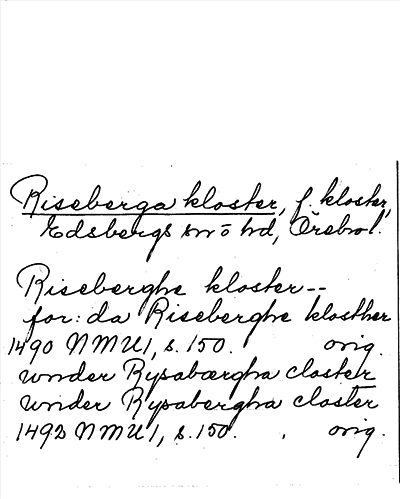 Riseberga kloster, f. kloster,
Edsbergs sn o hd, Örebro l.
Riseberghe kloster--
for: da Riseberghe klosther
1490 NMU 1, s. 150. orig.
wnder Rysabærgha closter
wnder Rysabergha closter
1492 NMU 1, s. 150. orig.